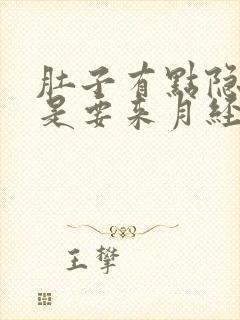 肚子有點隐
是要来月經
王攀